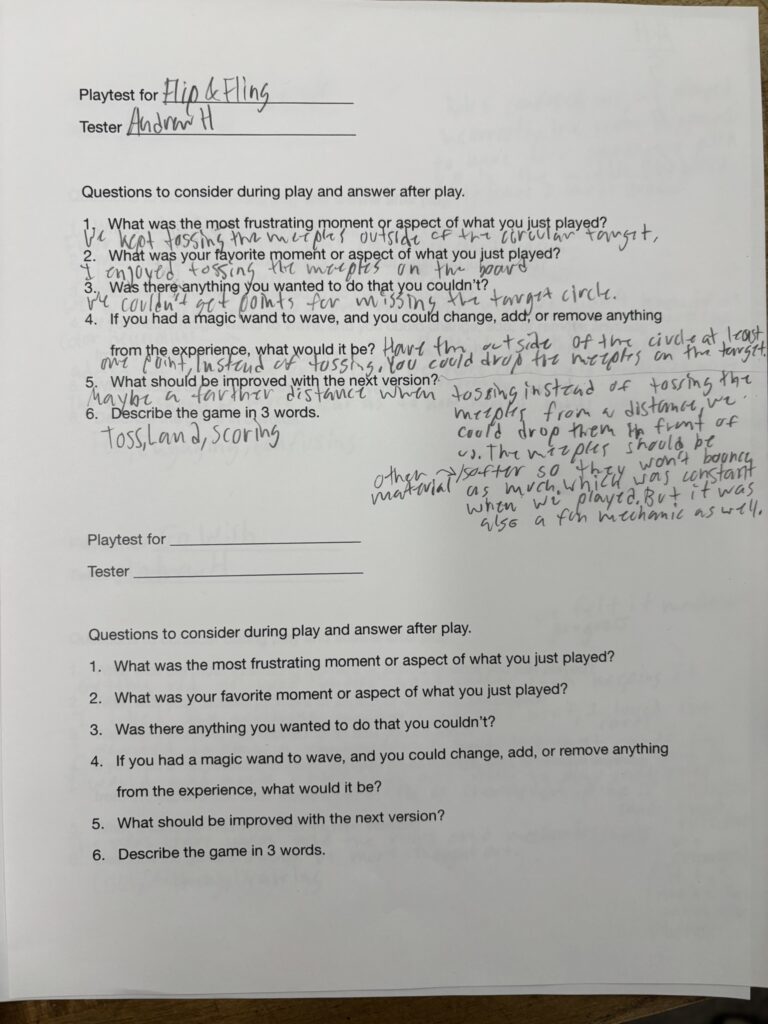 Playtest for Flip & Fling
Tester Andrew H
Questions to consider during play and answer after play.
1. What was the most frustrating moment or aspect of what you just played?
We kept tossing the meeples outside of the circular target.
2. What was your favorite moment or aspect of what you just played?
I enjoyed tossing the meeples on the board
3. Was there anything you wanted to do that you couldn't?
We couldn't get points for missing the target circle.
4. If you had a magic wand to wave, and you could change, add, or remove anything
from the experience, what would it be? Have the outside of the circle at least
one point, Instead of tossing, You could drop the meeples on the target.
5. What should be improved with the next version?
Maybe a farther distance when tossing instead of tossing the
meeples from a distance, we
could drop them in front of
us. The meeples should be
other material /softer so they won't bounce
as much, which was constant
when we played. But it was
also a fun mechanic as well.
6. Describe the game in 3 words.
Toss, Land, Scoring
Playtest for
Tester
Questions to consider during play and answer after play.
1. What was the most frustrating moment or aspect of what you just played?
2. What was your favorite moment or aspect of what you just played?
3. Was there anything you wanted to do that you couldn't?
4. If you had a magic wand to wave, and you could change, add, or remove anything
from the experience, what would it be?
5. What should be improved with the next version?
6. Describe the game in 3 words.